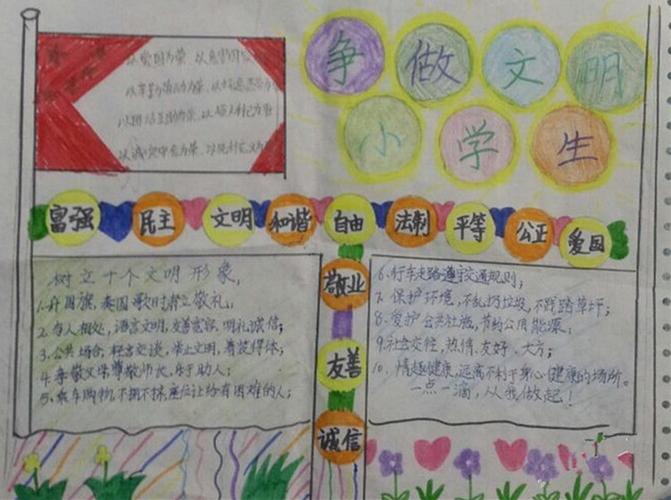 以爱国为荣、以
以团结互助为荣、以损人利己为
以诚实守信为荣、以见利忘义为
争做文明
小学生
富强 民主 文明 和谐 自由 法制 平等 公正 爱国
敬业
友善
诚信
树立十个文明形象,
1.升国旗,奏国歌时肃立敬礼;
2.与人相处,语言文明,友善宽容,明礼诚信;
3.公共场合,轻言交谈,举止文明,着装得体;
4.孝敬父母尊敬师长,乐于助人;
5.乘车购物,不拥不挤,座位让给有困难的人;
6.行车走路遵守交通规则;
7.保护环境,不乱扔垃圾,不践踏草坪;
8.爱护公共设施,节约公用能源;
9.社会交往,热情、友好、大方;
10.情趣健康,远离不利于身心健康的场所。
一点一滴,从我做起!